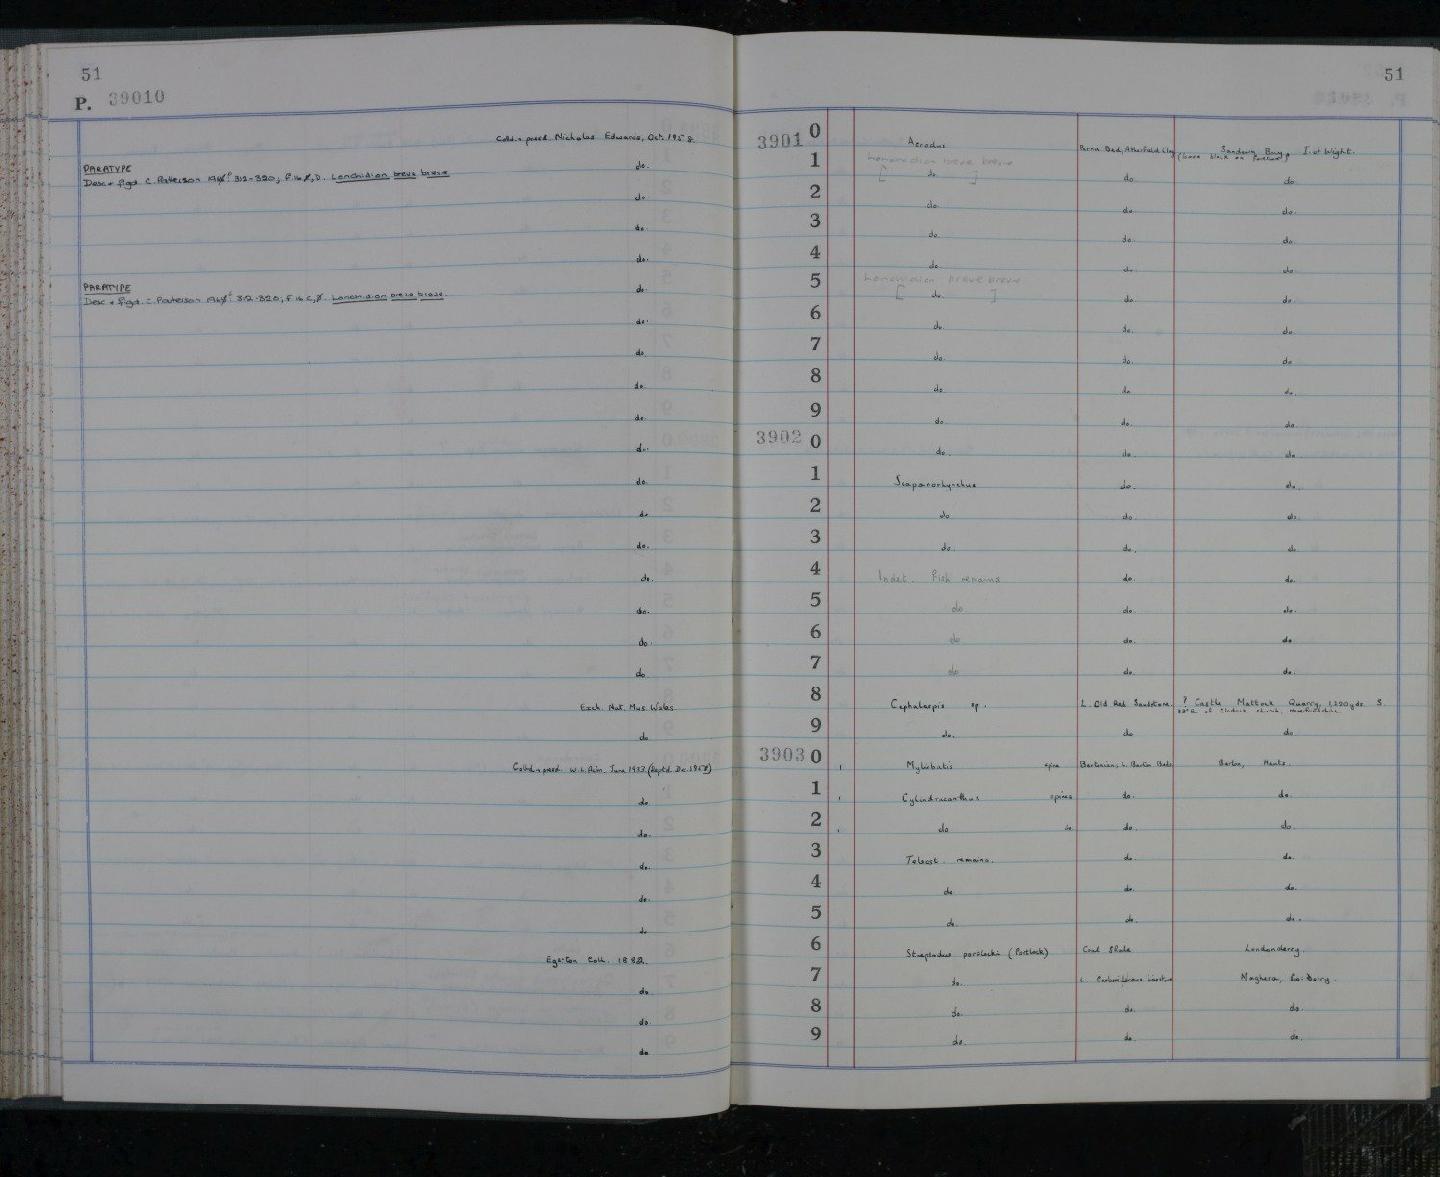 51
P. 39010
Colld. & presd. Nicholas Edwards, Oct. 1958.
PARATYPE
do.
Desc. & figd. C. Patterson 312-320, D. Lonchidion breve breve
do.
do.
do.
PARATYPE
do.
Desc. & figd. C. Patterson 312-320, Lonchidion breve breve.
do.
do.
do.
do.
do.
do.
do.
do.
do.
do.
do.
do.
Exch. Nat. Mus. Wales
do
Colld. & presd. W. L. June 1933 (Regd. Dec. 1958)
do
do.
do.
do.
do
Egerton Coll. 1882.
do
do.
do
51
3901 0 Acrodus Perna Bed, Atherfield Clay Sandown Bay, I. of Wight.
1 Lonchidion breve breve
[ do ] do. do.
2 do. do. do.
3 do. do. do.
4 do do. do
5 Lonchidion breve breve
[ do. ] do. do.
6 do. do. do.
7 do. do. do.
8 do do. do.
9 do. do. do
3902 0 do. do. do.
1 Scapanorhynchus do. do.
2 do do. do.
3 do. do. do
4 Indet. Fish remains do. do.
5 do do. do.
6 do do. do
7 do do. do.
8 Cephalaspis sp. L. Old Red Sandstone. ? Castle Mattock Quarry, 1,220 yds. S.
9 do. do do
3903 0 1 Myliobatis spine Bartonian, L. Barton Beds Barton, Hants.
1 1 Cylindracanthus spines do. do.
2 1 do do do. do.
3 Teleost remains. do. do.
4 do do. do.
5 do. do. do.
6 Streptodus portlocki (Portlock) Coal Shale Londonderry.
7 do. Carboniferous Limestone Maghera, Co. Derry.
8 do. do. do.
9 do. do. do.